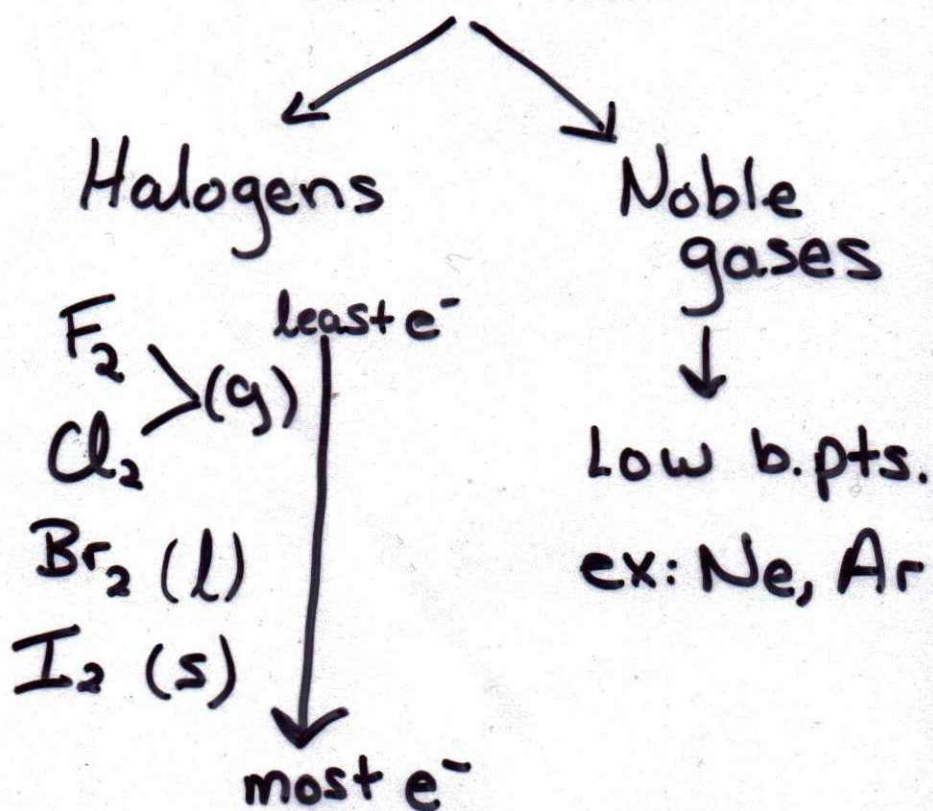 Halogens
F₂
Cl₂
(g)
Br₂ (l)
I₂ (s)
least e⁻
most e⁻
Noble
gases
Low b.pts.
ex: Ne, Ar